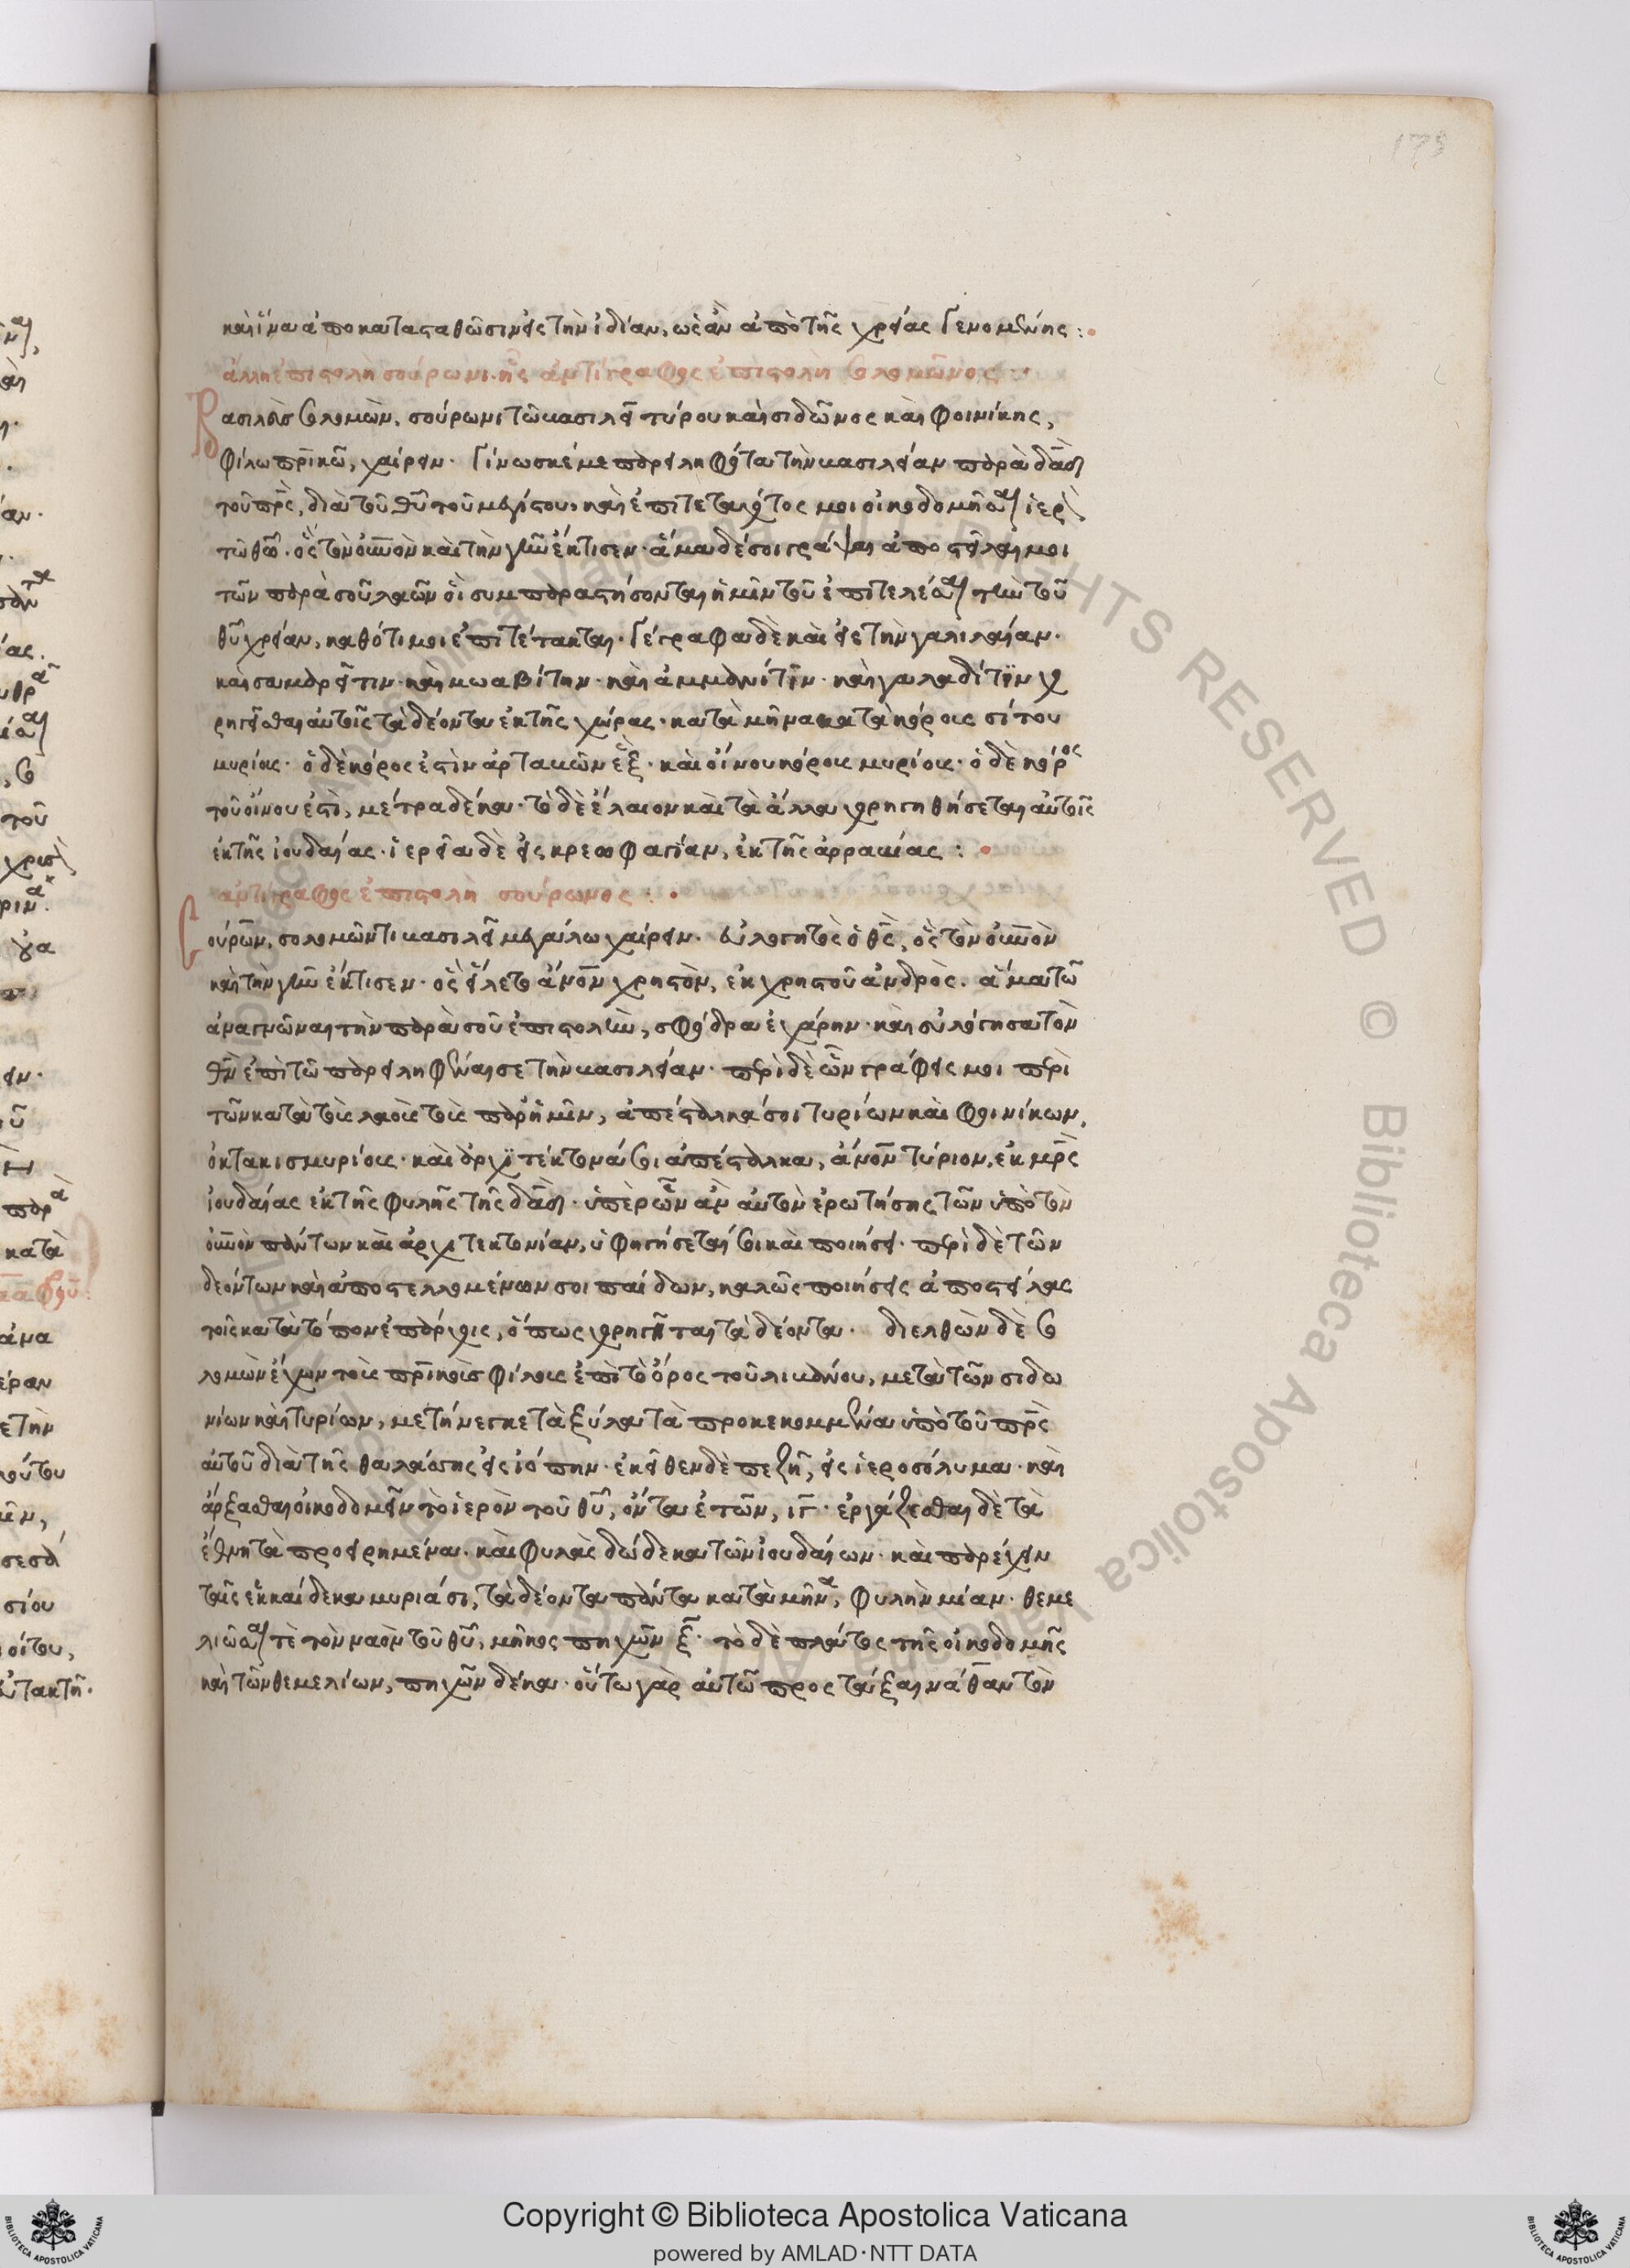 καὶ ἵνα ἀποκατασταθῶσιν εἰς τὴν ἰδίαν, ὡς ἂν ἀπὸ τῆς χρείας γενομένης :
ἄλλη ἐπιστολὴ σούρωνι. ἧς ἀντίγραφος ἐπιστολὴ σολομῶνος :
Βασιλεὺς σολομὼν, σούρωνι τῶ βασιλεῖ τύρου καὶ σιδῶνος καὶ φοινίκης,
φίλω πρικῶ, χαίρειν. Γίνωσκέ με παρειληφότα τὴν βασιλείαν παρὰ δαδ
τοῦ πρς, διὰ τοῦ θυ τοῦ μεγίστου, καὶ ἐπιτεταχότος μοι οἰκοδομῆσαι ἱερὸν
τῶ θω. ὃς τὸν οὐνὸν καὶ τὴν γῆν ἔκτισεν. ἅμα δέ σοι γράψαι ἀποστεῖλαι μοι
τῶν παρὰ σοῦ λαῶν οἳ συμπαραστήσονται ἡμῖν τοῦ ἐπιτελέσαι τὴν τοῦ
θυ χρείαν, καθότι μοι ἐπιτέτακται. Γέγραφα δὲ καὶ εἰς τὴν γαλιλαίαν.
καὶ σαμαρεῖτιν. καὶ μωαβίτην. καὶ ἀμμανίτϊν. καὶ γαλαδίτϊν χο
ρηγεῖσθαι αὐτοῖς τὰ δέοντα ἐκ τῆς χώρας. κατὰ μῆνα κατὰ κόρους σίτου
μυρίους. ὁ δὲ κόρος ἐστὶν ἀρταβῶν ἓξ. καὶ οἴνου κόρους μυρίους. ὁ δὲ κόρος
τοῦ οἴνου ἐστὶ, μέτρα δέκα. τὸ δὲ ἔλαιον καὶ τὰ ἄλλα χορηγηθήσεται αὐτοῖς
ἐκ τῆς ἰουδαίας. ἱερεῖα δὲ εἰς κρεωφαγίαν, ἐκ τῆς ἀρραβίας :
ἀντίγραφος ἐπιστολὴ σούρωνος :
Σούρων, σολομῶντι βασιλεῖ μεγάλω χαίρειν. εὐλογητὸς ὁ θς, ὃς τὸν οὐνὸν
καὶ τὴν γῆν ἔκτισεν. ὃς εἵλετο ἄνον χρηστὸν, ἐκ χρηστοῦ ἀνδρὸς. ἅμα τῶ
ἀναγνῶναι τὴν παρὰ σοῦ ἐπιστολὴν, σφόδρα ἐχάρην. καὶ εὐλόγησα τὸν
θν ἐπὶ τῶ παρειληφέναι σε τὴν βασιλείαν. περὶ δὲ ὧν γράφεις μοι περὶ
τῶν κατὰ τοὺς λαοὺς τοὺς παρ' ἡμῖν, ἀπέσταλκά σοι τυρίων καὶ φοινίκων,
ὀκτακισμυρίους. καὶ ἀρχϊτέκτονά σοι ἀπέσταλκα, ἄνον τύριον, ἐκ μρς
ἰουδαίας ἐκ τῆς φυλῆς τῆς δαδ. ὑπὲρ ὧν ἂν αὐτὸν ἐρωτήσης τῶν ὑπὸ τὸν
οὐνὸν πάντων καὶ ἀρχιτεκτονίαν, ὑφηγήσεταί σοι καὶ ποιήσει. περὶ δὲ τῶν
δεόντων καὶ ἀποστελλομένων σοι παίδων, καλῶς ποιήσεις ἀποστείλας
τοῖς κατὰ τόπον ἐπάρχοις, ὅπως χορηγῆται τὰ δέοντα. διελθὼν δὲ σο
λομὼν ἔχων τοὺς πρικοὺς φίλους ἐπὶ τὸ ὄρος τοῦ λιβάνου, μετὰ τῶν σιδω
νίων καὶ τυρίων, μετήνεγκε τὰ ξύλα τὰ προκεκομμένα ὑπὸ τοῦ πρς
αὐτοῦ διὰ τῆς θαλάσσης εἰς ἰόπην. ἐκεῖθεν δὲ πεζῆ, εἰς ἱεροσόλυμα. καὶ
ἄρξασθαι οἰκοδομεῖν τὸ ἱερὸν τοῦ θυ, ὄντα ἐτῶν, ιγ. ἐργάζεσθαι δὲ τὰ
ἔθνη τὰ προειρημένα. καὶ φυλὰς δώδεκα τῶν ἰουδαίων. καὶ παρέχειν
ταῖς ἑκκαίδεκα μυριάσι, τὰ δέοντα πάντα κατὰ μῆνα, φυλὴν μίαν. θεμε
λιῶσαι τὲ τὸν ναὸν τοῦ θυ, μῆκος πηχῶν ξ. τὸ δὲ πλάτος τῆς οἰκοδομῆς
καὶ τῶν θεμελίων, πηχῶν δέκα. οὕτω γὰρ αὐτῶ προστάξαι νάθαν τὸν
Copyright © Biblioteca Apostolica Vaticana
powered by AMLAD·NTT DATA